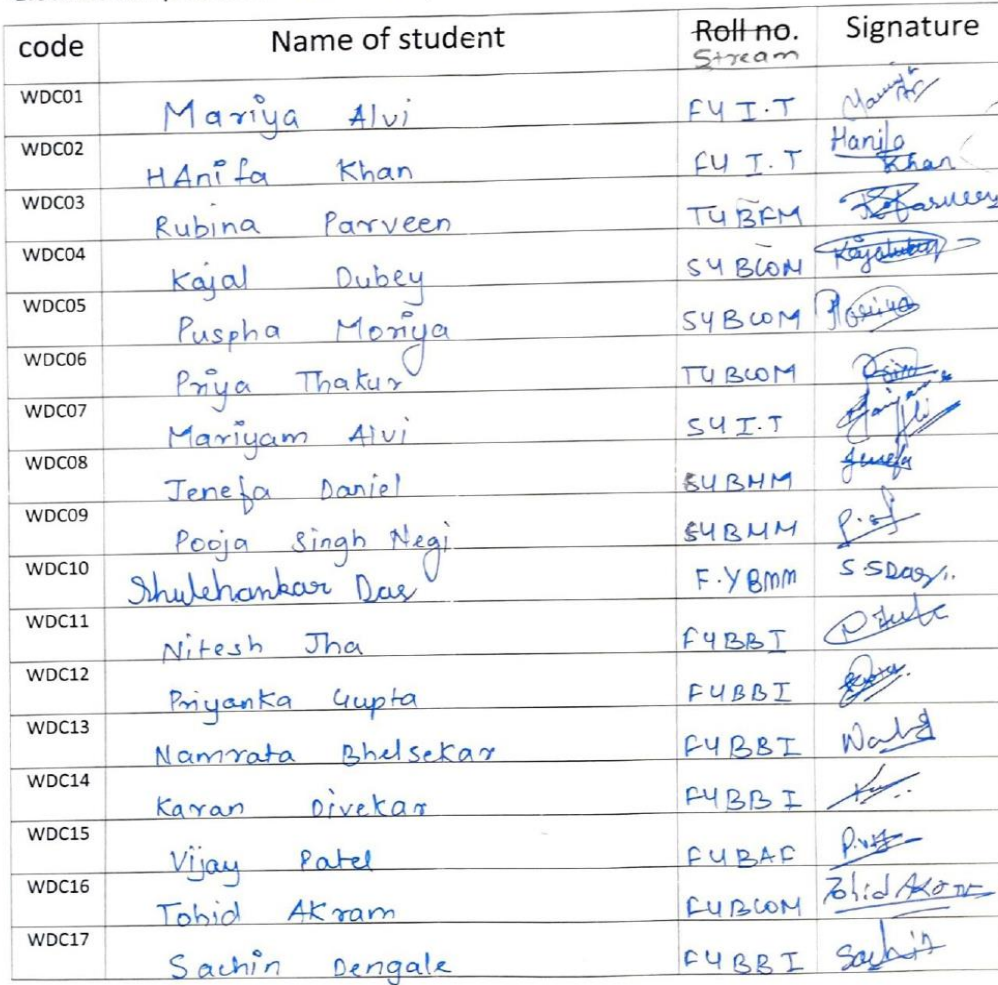 code Name of student Roll no. Stream Signature
WDC01 Mariya Alvi FY I.T
WDC02 HAnifa Khan FY I.T Hanifa Khan
WDC03 Rubina Parveen TYBFM
WDC04 Kajal Dubey SYBCOM
WDC05 Puspha Moriya SYBCOM
WDC06 Priya Thakur TYBCOM
WDC07 Mariyam Alvi SY I.T
WDC08 Jenefa Daniel SYBMM Jenefa
WDC09 Pooja Singh Negi SYBMM
WDC10 Das F.YBmm S.SDas
WDC11 Nitesh Jha FYBBI
WDC12 Priyanka Gupta FYBBI
WDC13 Namrata Bhelsekar FYBBI
WDC14 Karan Divekar FYBBI
WDC15 Vijay Patel FYBAF
WDC16 Tohid AKram FYBCOM Tohid AKram
WDC17 Sachin Dengale FYBBI Sachin